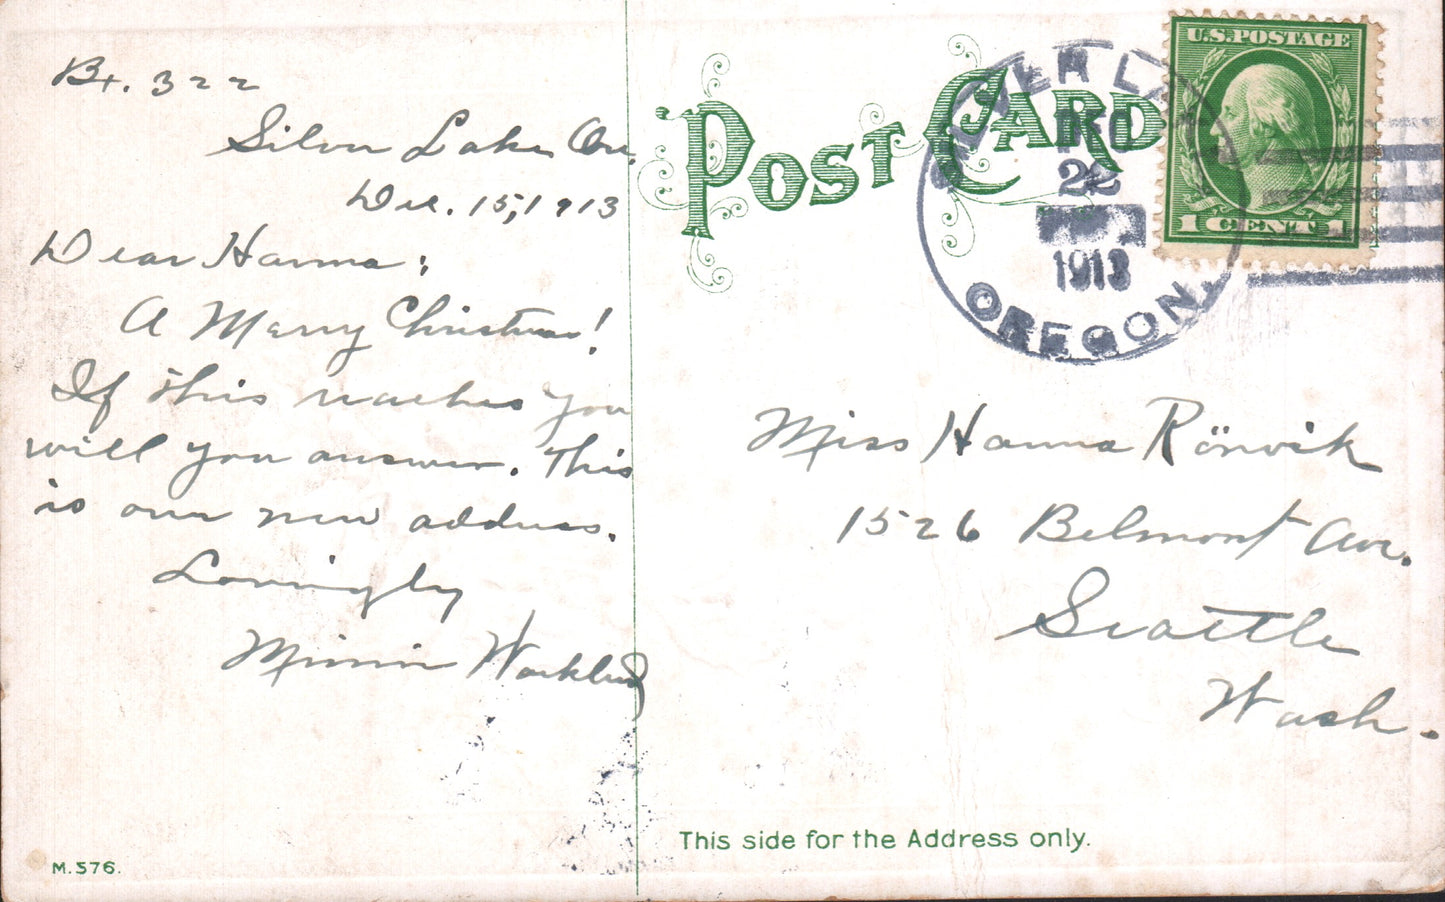 Bx. 322
Silver Lake Ore.
Dec. 15, 1913
Dear Hanna:
A Merry Christmas!
If this reaches you
will you answer. This
is our new address.
Lovingly
Minnie
POST CARD
SILVER LAKE
DEC
22
1913
OREGON.
U.S. POSTAGE
1 CENT 1
Miss Hanna Rönvik
1526 Belmont Ave.
Seattle
Wash.
This side for the Address only.
M. 576.